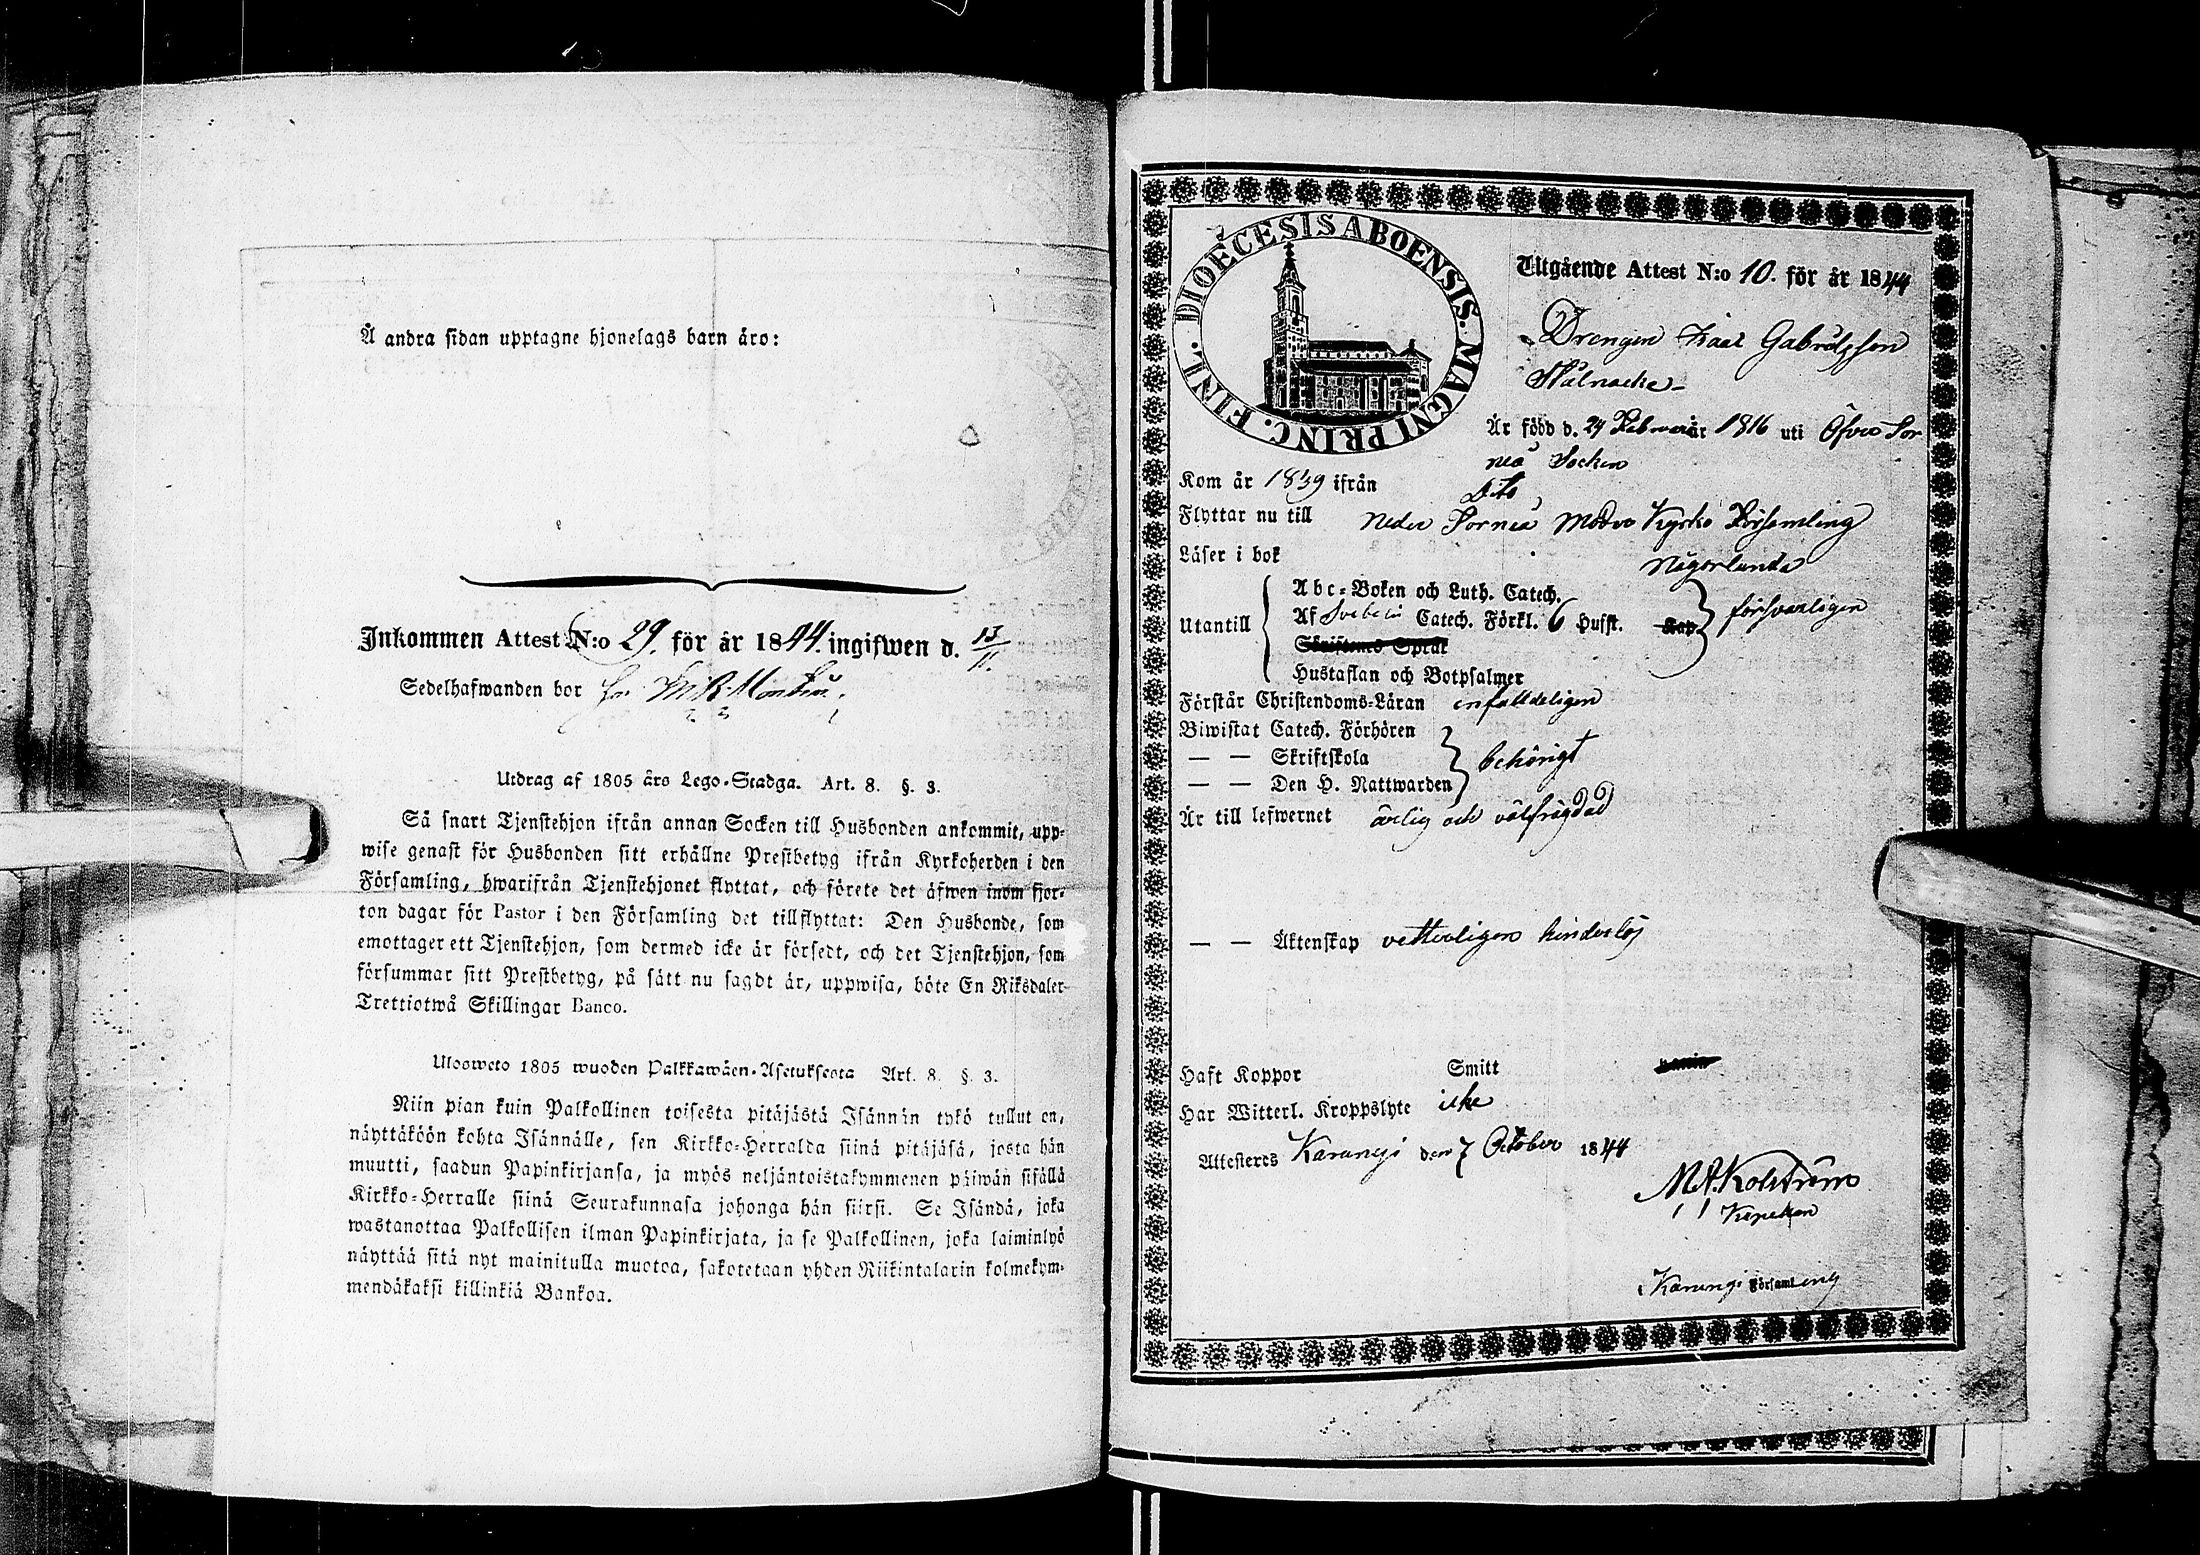 Å andra sidan upptagne hjonelags barn äro:
Inkommen Attest N:o 29. för år 1844. ingifwen d. 13/11.
Sedelhafwanden bor
Utdrag af 1805 års Lego-Stadga. Art. 8. §. 3.
Så snart Tjenstehjon ifrån annan Socken till Husbonden ankommit, upp-
wise genast för Husbonden sitt erhållne Prestbetyg ifrån Kyrkoherden i den
Församling, hwarifrån Tjenstehjonet flyttat, och förete det äfwen inom fjor-
ton dagar för Pastor i den Församling det tillflyttat: Den Husbonde, som
emottager ett Tjenstehjon, som dermed icke är försedt, och det Tjenstehjon, som
försummar sitt Prestbetyg, på sätt nu sagdt är, uppwisa, böte En Riksdaler
Trettiotwå Skillingar Banco.
Ulosweto 1805 wuoden Palkkawäen-Asetuksesta Art. 8. §. 3.
Niin pian kuin Palkollinen toisesta pitäjästä Isännän tykö tullut on,
näyttäköön kohta Isännälle, sen Kirkko-Herralda siinä pitäjäsä, josta hän
muutti, saadun Papinkirjansa, ja myös neljäntoistakymmenen päiwän sisällä
Kirkko-Herralle siinä Seurakunnasa johonga hän siirsi. Se Isändä, joka
wastanottaa Palkollisen ilman Papinkirjata, ja se Palkollinen, joka laiminlyö
näyttää sitä nyt mainitulla muotoa, sakotetaan yhden Riikintalarin kolmekym-
mendäkaksi killinkiä Bankoa.
DIOECESIS ABOENSIS. MAGNI PRINC. FINL.
Utgående Attest N:o 10. för år 1844
Drengen Isaac Gabrielsson
Stålnacke
Är född d. 24 Februari år 1816 uti Öfver Tor
neå Socken
Kom år 1839 ifrån Dito
Flyttar nu till Neder Torneå Moder Kyrko Församling
Läser i bok någorlunda
Abc-Boken och Luth. Catech.
Utantill Af Svebelii Catech. Förkl. 6 Hufst. Kap försvarligen
Skriftenes Språk
Hustaflan och Botpsalmer
Förstår Christendoms-Läran enfalldeligen
Biwistat Catech. Förhören
— — Skriftskola behörigt
— — Den H. Nattwarden
Är till lefwernet ärlig och välfrägdad
— — Äktenskap vetterligen hinderlös
Haft Koppor Smitt
Har Witterl. Kroppslyte icke
Attesteres Karungi den 7 October 1844
M A Kolström
Kapellan
Karungi Församling